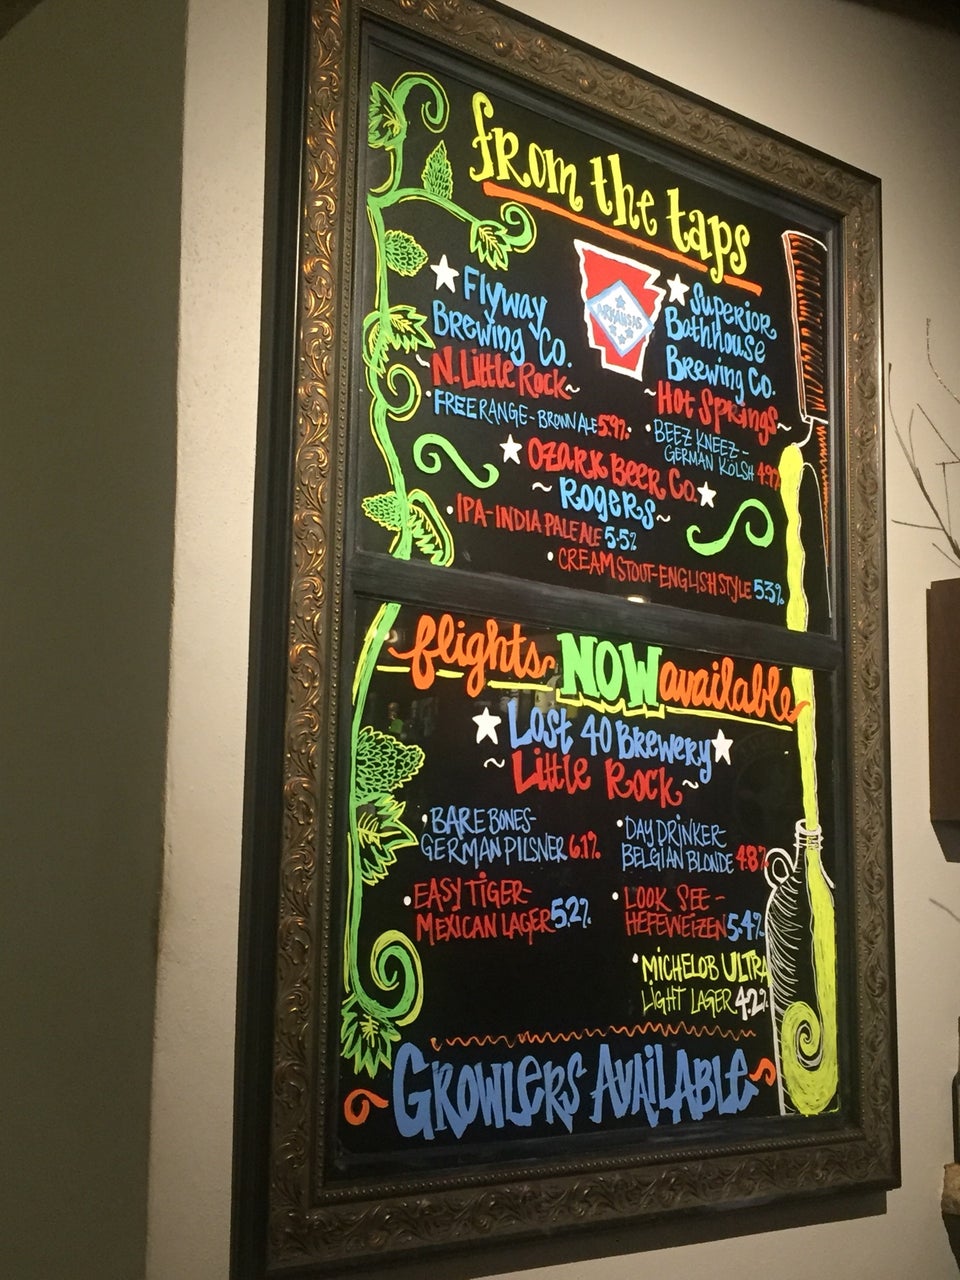 from the taps
Flyway
Brewing Co.
~N. Little Rock~
• FREE RANGE - BROWN ALE 5.9%
ARKANSAS
Superior
Bathhouse
Brewing Co.
~Hot Springs~
• BEEZ KNEEZ -
GERMAN KÖLSH 4.9%
Ozark Beer Co.
~Rogers~
• IPA-INDIA PALE ALE 5.5%
• CREAM STOUT-ENGLISH STYLE 5.3%
flights NOW available
Lost 40 Brewery
~Little Rock~
• BARE BONES-
GERMAN PILSNER 6.1%
• DAY DRINKER-
BELGIAN BLONDE 4.8%
• EASY TIGER-
MEXICAN LAGER 5.2%
• LOOK SEE -
HEFEWEIZEN 5.4%
• MICHELOB ULTRA
LIGHT LAGER 4.2%
GROWLERS AVAILABLE